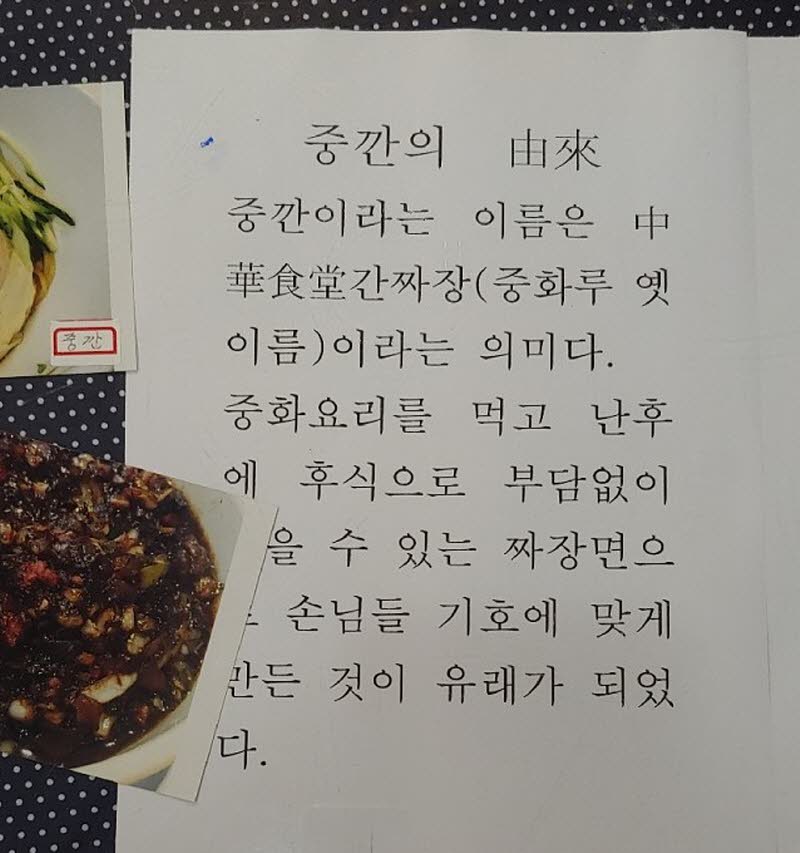 중깐의 由來
중깐이라는 이름은 中
華食堂간짜장(중화루 옛
이름)이라는 의미다.
중화요리를 먹고 난후
에 후식으로 부담없이
을 수 있는 짜장면으
손님들 기호에 맞게
만든 것이 유래가 되었
다.
중깐